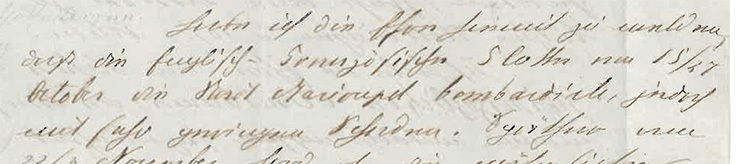 habe ich die Ehre hiermit zu melden,
daß die Englisch-Französische Flotte am 15/27
October die Stadt Marioupol bombardirte, jedoch
mit sehr geringem Schaden. Später am
November